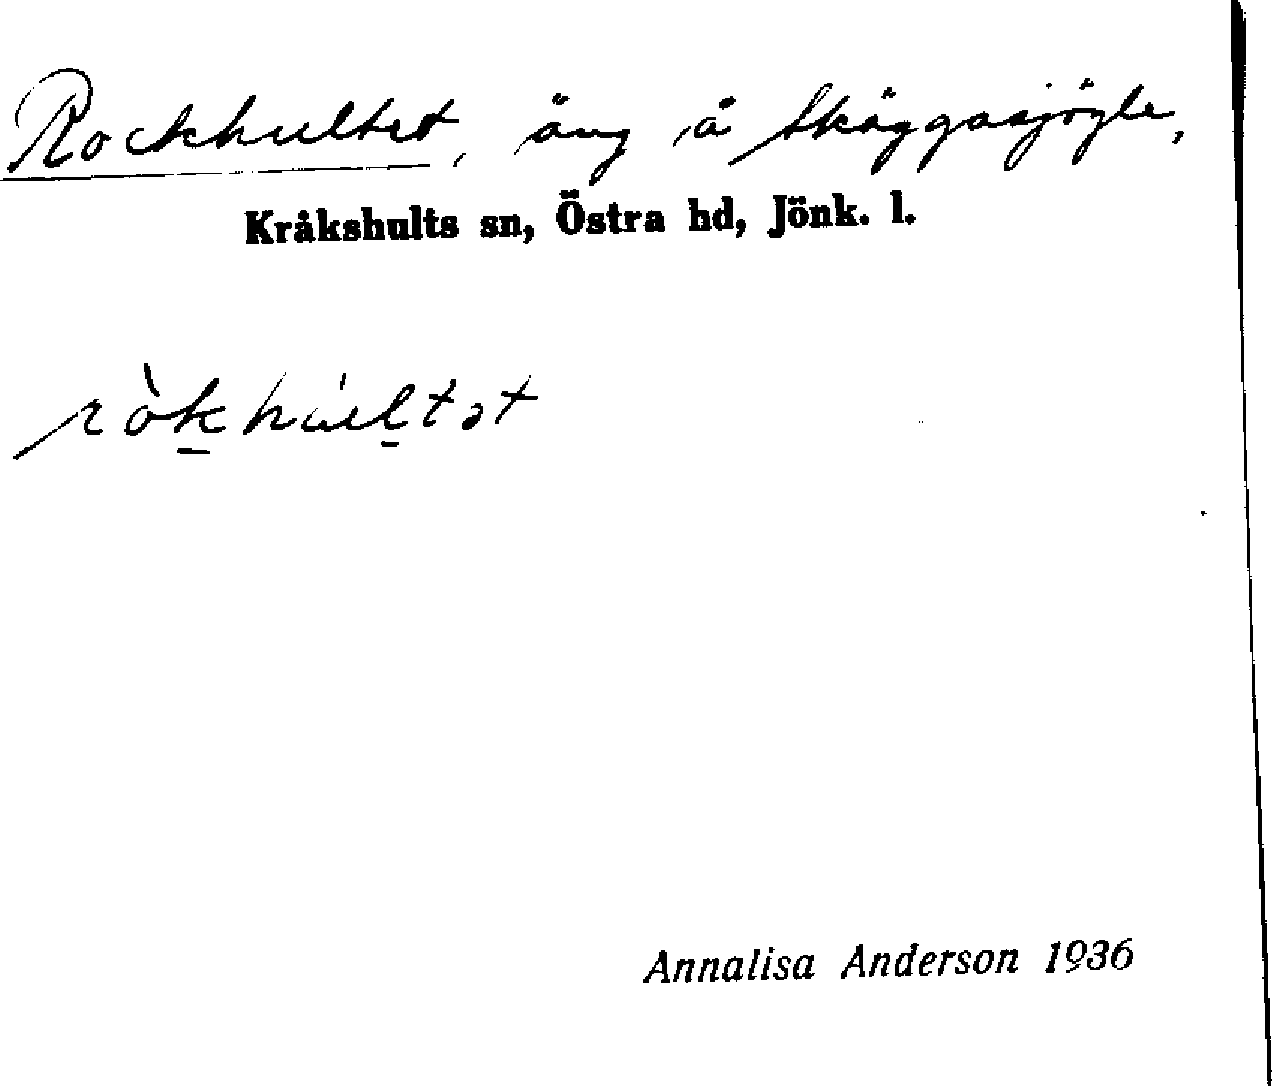 Rockhultet, äng å Skäggasjögle,
Kråkshults sn, Östra hd, Jönk. l.
ròkhúltət
Annalisa Anderson 1936